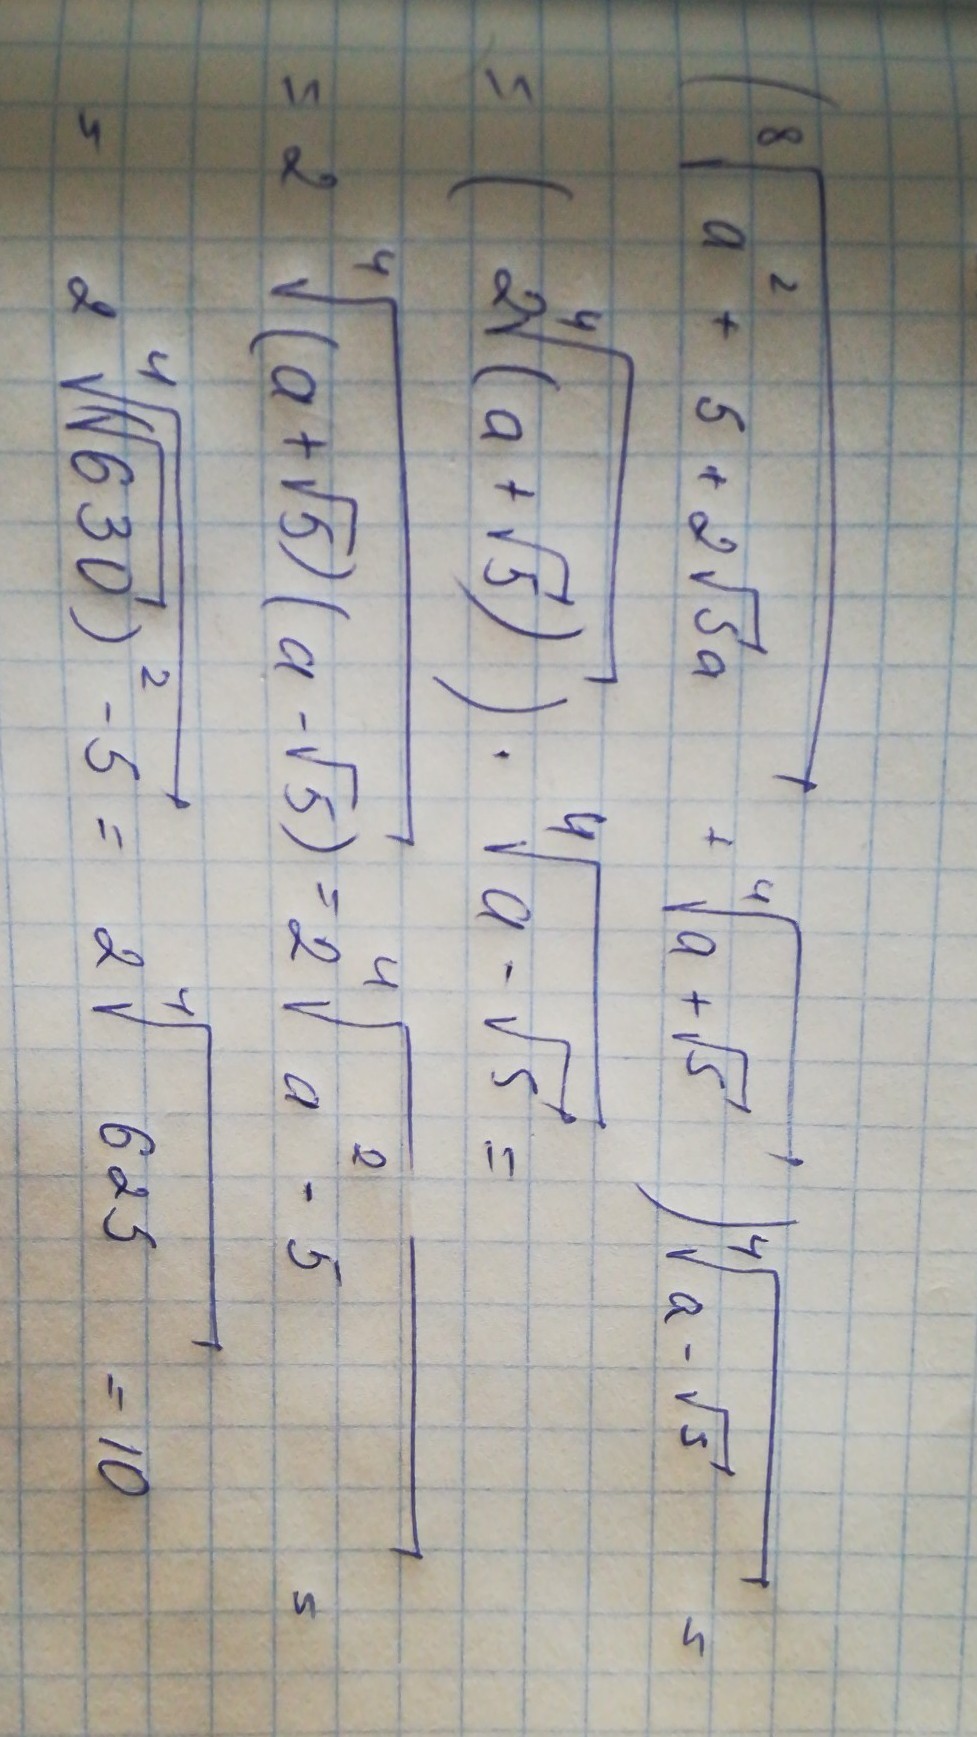 (⁸√(a² + 5 + 2√5a) + ⁴√(a + √5)) ⁴√(a - √5) =
= (2 ⁴√(a + √5)) · ⁴√(a - √5) =
= 2 ⁴√((a + √5)(a - √5)) = 2 ⁴√(a² - 5) =
= 2 ⁴√((√630)² - 5) = 2 ⁴√625 = 10